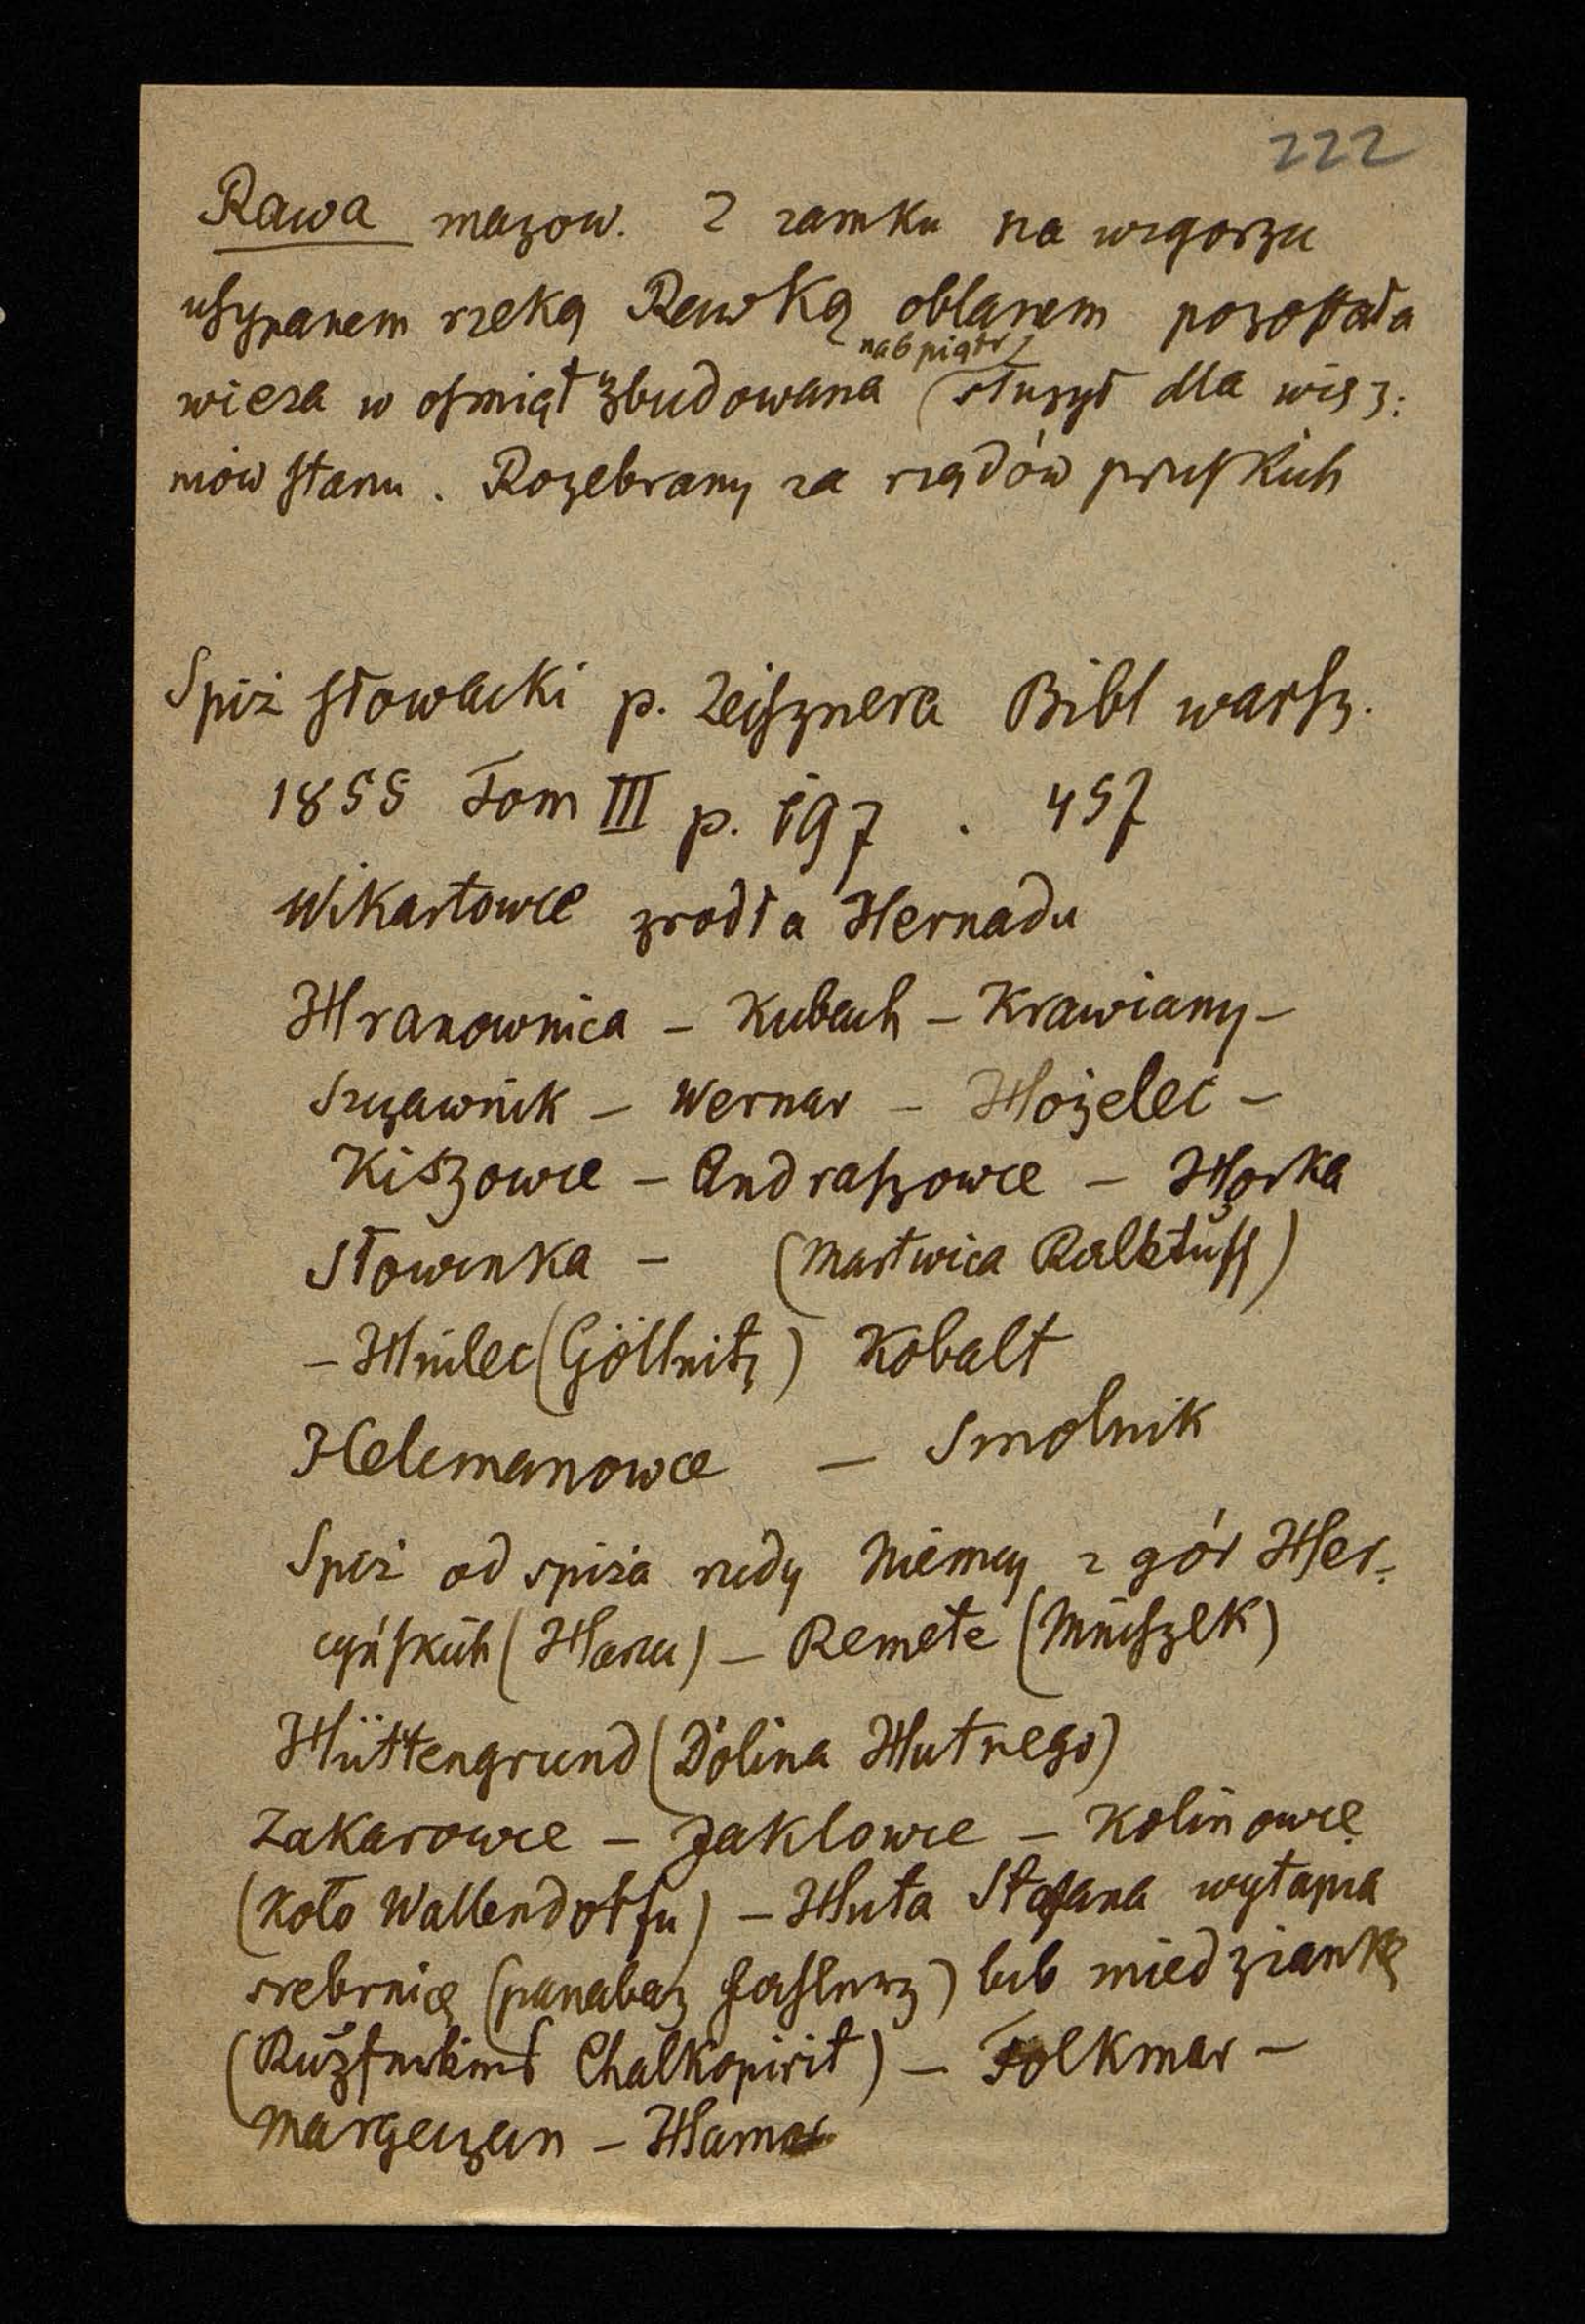 222
Rawa mazow. Z zamku na wzgorzu
usypanem rzeką Rawką oblanem pozostała
nad piątr
wieza w ośmiąt zbudowana (służył dla więź:
niow stanu. Rozebrany za rządów pruskich
Spiż słowacki p. Zeisznera Bibl warsz.
1855 Tom III p. 197 . 457
Wikartowce zrodła Hernadu
Hranownica – Kubach – Krawiany –
Szczawnik – Wernar – Hożelec –
Kiszowce – Andraszowce – Horka
Słowinka – (Martwica Kalktuff)
– Hnilec (Göllnitz) Kobalt
Helcmanowce – Smolnik
Spiż od spiża rudy Niemcy z gór Her-
cyńskich (Harcu) – Remete (Mniszek)
Hüttengrund (Dolina Hutnego)
Zakarowce – Jaklowce – Kolinowce
(koło Wallendorfu) – Huta Stefana wytapia
srebrnicę (panabaz ) lub miedziankę
( Chalkopirit) – Folkmar –
Margeczan – Hamor